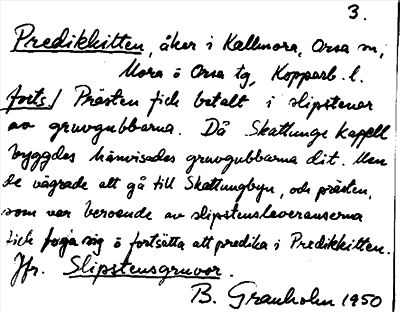 3.
Predikkitten, åker i Kallmora, Orsa sn,
Mora o Orsa tg, Kopparb. l.
forts/ Prästen fick betalt i slipstenar
av gruvgubbarna. Då Skattunge kapell
byggdes hänvisades gruvgubbarna dit. Men
de vägrade att gå till Skattungbyn, och prästen,
som var beroende av slipstensleveranserna
fick foga sig o fortsätta att predika i Predikkitten.
Jfr. Slipstensgruvor.
B. Granholm 1950